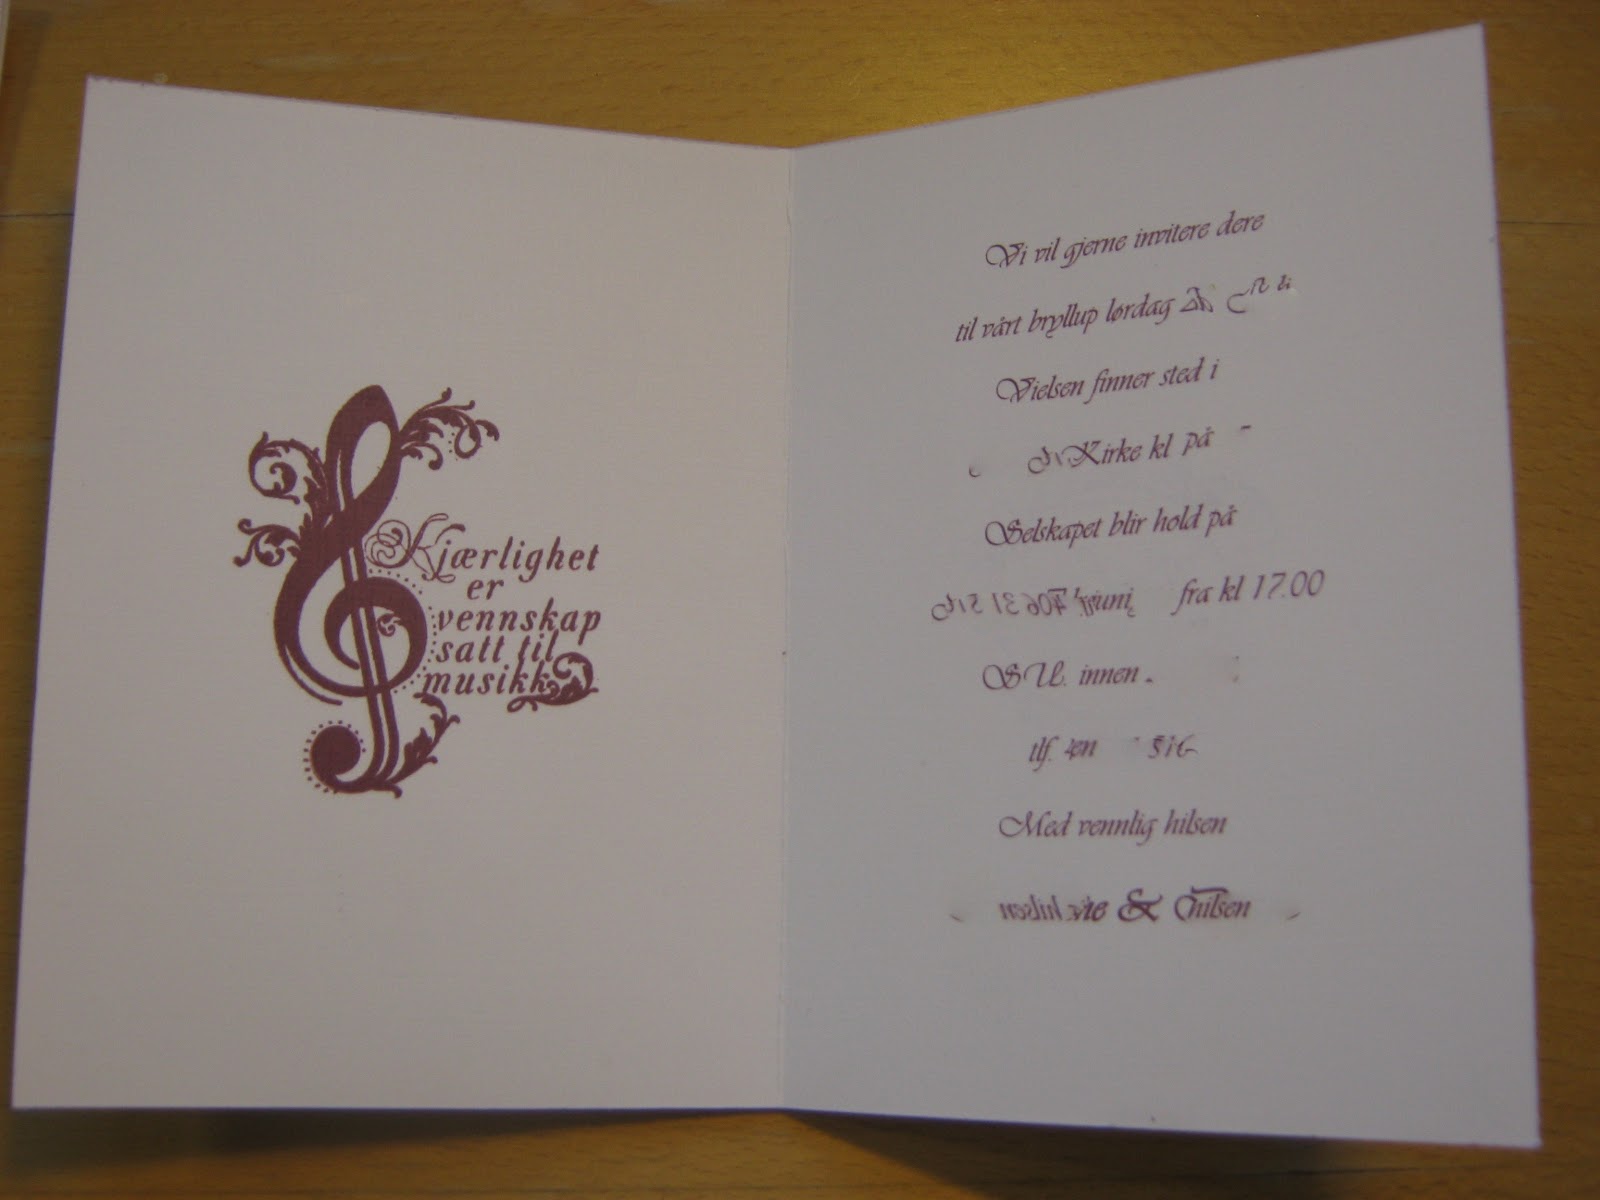 Kjærlighet
er
vennskap
satt til
musikk
Vi vil gjerne invitere dere
til vårt bryllup lørdag
Vielsen finner sted i
Kirke kl på
Selskapet blir hold på
fra kl 17.00
S.U. innen
tlf.
Med vennlig hilsen
&